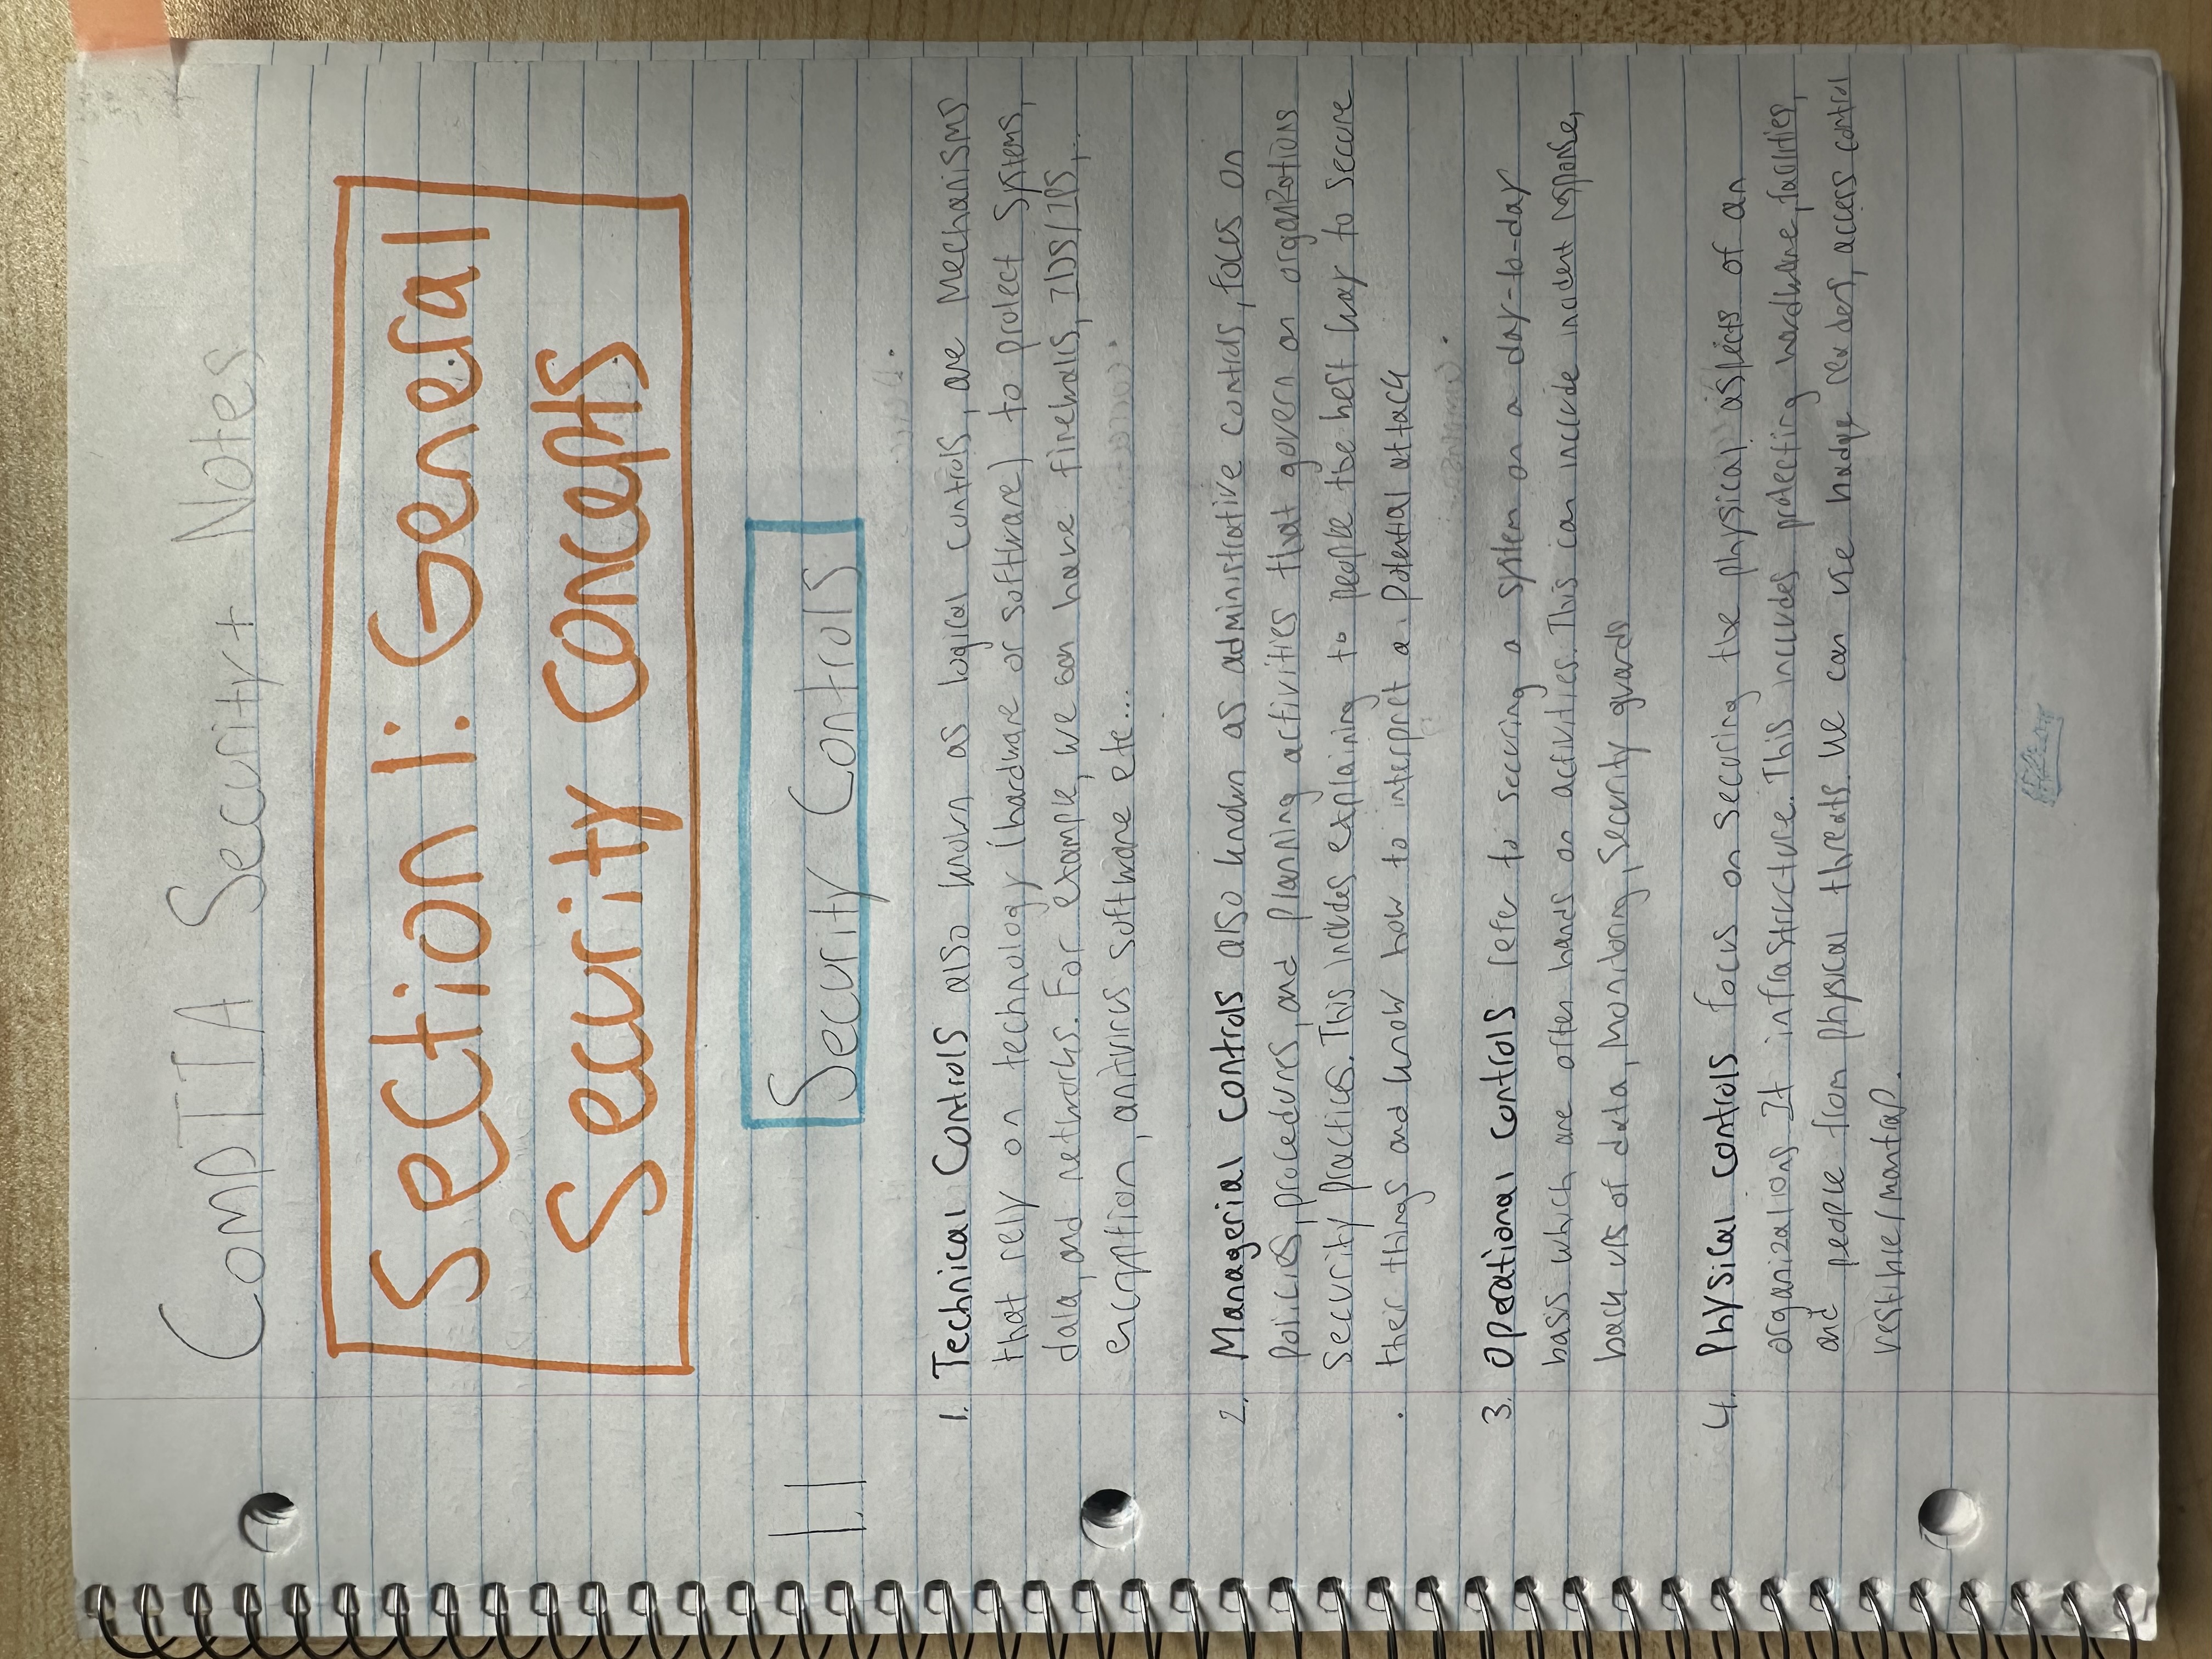 CompTIA Security+ Notes
Section 1: General
Security Concepts
1.1
Security Controls
1. Technical Controls also known as logical controls, are Mechanisms
that rely on technology (hardware or software) to protect systems,
data, and networks. For example, we can have firewalls, IDS/IPS,
encryption, antivirus software etc...
2. Managerial controls also known as administrative controls, focus on
policies, procedures, and planning activities that govern an organizations
security practices. This includes explaining to people the best way to secure
their things and know how to interpret a potential attack
3. Operational controls refer to securing a system on a day-to-day
basis which are often hands on activities. This can include incident response,
back ups of data, Monitoring, Security guards
4. Physical controls focus on securing the physical aspects of an
organizations It infrastructure. This includes protecting hardware, facilities,
and people from physical threats. We can use badge readers, access control
vestibule/mantrap.